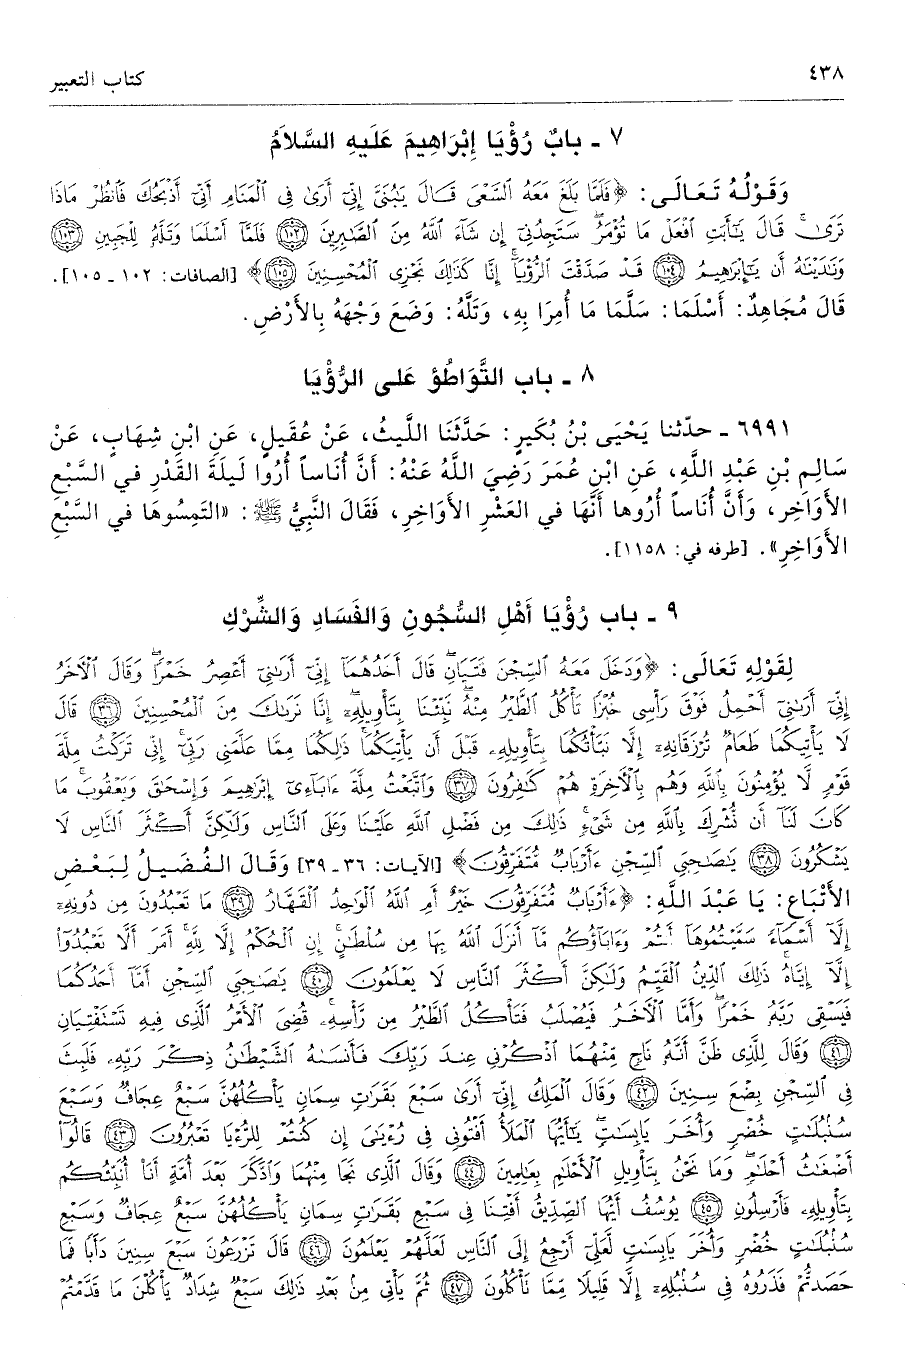 ٤٣٨ كتاب التعبير
٧ ـ بابُ رُؤْيَا إِبْرَاهِيمَ عَلَيهِ السَّلاَمُ
وَقَوْلُهُ تَعَالَى: ﴿فَلَمَّا بَلَغَ مَعَهُ ٱلسَّعْىَ قَالَ يَٰبُنَىَّ إِنِّىٓ أَرَىٰ فِى ٱلْمَنَامِ أَنِّىٓ أَذْبَحُكَ فَٱنظُرْ مَاذَا
تَرَىٰۚ قَالَ يَٰٓأَبَتِ ٱفْعَلْ مَا تُؤْمَرُۖ سَتَجِدُنِىٓ إِن شَآءَ ٱللَّهُ مِنَ ٱلصَّٰبِرِينَ ١٠٢ فَلَمَّآ أَسْلَمَا وَتَلَّهُۥ لِلْجَبِينِ ١٠٣
وَنَٰدَيْنَٰهُ أَن يَٰٓإِبْرَٰهِيمُ ١٠٤ قَدْ صَدَّقْتَ ٱلرُّءْيَآۚ إِنَّا كَذَٰلِكَ نَجْزِى ٱلْمُحْسِنِينَ ١٠٥﴾ [الصافات: ١٠٢ ـ ١٠٥].
قَالَ مُجَاهِدٌ: أَسْلَمَا: سَلَّمَا مَا أُمِرَا بِهِ، وَتَلَّهُ: وَضَعَ وَجْهَهُ بِالأَرْضِ.
٨ ـ باب التَّوَاطُؤ عَلَى الرُّؤْيَا
٦٩٩١ ـ حدّثنا يَحْيَى بْنُ بُكَيرٍ: حَدَّثَنَا اللَّيثُ، عَنْ عُقَيلٍ، عَنِ ابْنِ شِهَابٍ، عَنْ
سَالِمِ بْنِ عَبْدِ اللَّهِ، عَنِ ابْنِ عُمَرَ رَضِيَ اللَّهُ عَنْهُ: أَنَّ أُنَاساً أُرُوا لَيلَةَ القَدْرِ في السَّبْعِ
الأَوَاخِرِ، وَأَنَّ أُنَاساً أُرُوها أَنَّهَا في العَشْرِ الأَوَاخِرِ، فَقَالَ النَّبِيُّ ﷺ: «التَمِسُوهَا في السَّبْعِ
الأَوَاخِرِ». [طرفه في: ١١٥٨].
٩ ـ باب رُؤْيَا أَهْلِ السُّجُونِ وَالفَسَادِ وَالشِّرْكِ
لِقَوْلِهِ تَعَالَى: ﴿وَدَخَلَ مَعَهُ ٱلسِّجْنَ فَتَيَانِۖ قَالَ أَحَدُهُمَآ إِنِّىٓ أَرَىٰنِىٓ أَعْصِرُ خَمْرًاۖ وَقَالَ ٱلْءَاخَرُ
إِنِّىٓ أَرَىٰنِىٓ أَحْمِلُ فَوْقَ رَأْسِى خُبْزًا تَأْكُلُ ٱلطَّيْرُ مِنْهُۖ نَبِّئْنَا بِتَأْوِيلِهِۦٓۖ إِنَّا نَرَىٰكَ مِنَ ٱلْمُحْسِنِينَ ٣٦ قَالَ
لَا يَأْتِيكُمَا طَعَامٌ تُرْزَقَانِهِۦٓ إِلَّا نَبَّأْتُكُمَا بِتَأْوِيلِهِۦ قَبْلَ أَن يَأْتِيَكُمَاۚ ذَٰلِكُمَا مِمَّا عَلَّمَنِى رَبِّىٓۚ إِنِّى تَرَكْتُ مِلَّةَ
قَوْمٍ لَّا يُؤْمِنُونَ بِٱللَّهِ وَهُم بِٱلْءَاخِرَةِ هُمْ كَٰفِرُونَ ٣٧ وَٱتَّبَعْتُ مِلَّةَ ءَابَآءِىٓ إِبْرَٰهِيمَ وَإِسْحَٰقَ وَيَعْقُوبَۚ مَا
كَانَ لَنَآ أَن نُّشْرِكَ بِٱللَّهِ مِن شَىْءٍۚ ذَٰلِكَ مِن فَضْلِ ٱللَّهِ عَلَيْنَا وَعَلَى ٱلنَّاسِ وَلَٰكِنَّ أَكْثَرَ ٱلنَّاسِ لَا
يَشْكُرُونَ ٣٨ يَٰصَٰحِبَىِ ٱلسِّجْنِ ءَأَرْبَابٌ مُّتَفَرِّقُونَ﴾ [الآيات: ٣٦ ـ ٣٩] وَقَالَ الفُضَيلُ لِبَعْضِ
الأَتْبَاعِ: يَا عَبْدَ اللَّهِ: ﴿ءَأَرْبَابٌ مُّتَفَرِّقُونَ خَيْرٌ أَمِ ٱللَّهُ ٱلْوَٰحِدُ ٱلْقَهَّارُ ٣٩ مَا تَعْبُدُونَ مِن دُونِهِۦٓ
إِلَّآ أَسْمَآءً سَمَّيْتُمُوهَآ أَنتُمْ وَءَابَآؤُكُم مَّآ أَنزَلَ ٱللَّهُ بِهَا مِن سُلْطَٰنٍۚ إِنِ ٱلْحُكْمُ إِلَّا لِلَّهِۚ أَمَرَ أَلَّا تَعْبُدُوٓا۟
إِلَّآ إِيَّاهُۚ ذَٰلِكَ ٱلدِّينُ ٱلْقَيِّمُ وَلَٰكِنَّ أَكْثَرَ ٱلنَّاسِ لَا يَعْلَمُونَ ٤٠ يَٰصَٰحِبَىِ ٱلسِّجْنِ أَمَّآ أَحَدُكُمَا
فَيَسْقِى رَبَّهُۥ خَمْرًاۖ وَأَمَّا ٱلْءَاخَرُ فَيُصْلَبُ فَتَأْكُلُ ٱلطَّيْرُ مِن رَّأْسِهِۦۚ قُضِىَ ٱلْأَمْرُ ٱلَّذِى فِيهِ تَسْتَفْتِيَانِ
٤١ وَقَالَ لِلَّذِى ظَنَّ أَنَّهُۥ نَاجٍ مِّنْهُمَا ٱذْكُرْنِى عِندَ رَبِّكَ فَأَنسَىٰهُ ٱلشَّيْطَٰنُ ذِكْرَ رَبِّهِۦ فَلَبِثَ
فِى ٱلسِّجْنِ بِضْعَ سِنِينَ ٤٢ وَقَالَ ٱلْمَلِكُ إِنِّىٓ أَرَىٰ سَبْعَ بَقَرَٰتٍ سِمَانٍ يَأْكُلُهُنَّ سَبْعٌ عِجَافٌ وَسَبْعَ
سُنۢبُلَٰتٍ خُضْرٍ وَأُخَرَ يَابِسَٰتٍۖ يَٰٓأَيُّهَا ٱلْمَلَأُ أَفْتُونِى فِى رُءْيَٰىَ إِن كُنتُمْ لِلرُّءْيَا تَعْبُرُونَ ٤٣ قَالُوٓا۟
أَضْغَٰثُ أَحْلَٰمٍۖ وَمَا نَحْنُ بِتَأْوِيلِ ٱلْأَحْلَٰمِ بِعَٰلِمِينَ ٤٤ وَقَالَ ٱلَّذِى نَجَا مِنْهُمَا وَٱدَّكَرَ بَعْدَ أُمَّةٍ أَنَا۠ أُنَبِّئُكُم
بِتَأْوِيلِهِۦ فَأَرْسِلُونِ ٤٥ يُوسُفُ أَيُّهَا ٱلصِّدِّيقُ أَفْتِنَا فِى سَبْعِ بَقَرَٰتٍ سِمَانٍ يَأْكُلُهُنَّ سَبْعٌ عِجَافٌ وَسَبْعِ
سُنۢبُلَٰتٍ خُضْرٍ وَأُخَرَ يَابِسَٰتٍ لَّعَلِّىٓ أَرْجِعُ إِلَى ٱلنَّاسِ لَعَلَّهُمْ يَعْلَمُونَ ٤٦ قَالَ تَزْرَعُونَ سَبْعَ سِنِينَ دَأَبًا فَمَا
حَصَدتُّمْ فَذَرُوهُ فِى سُنۢبُلِهِۦٓ إِلَّا قَلِيلًا مِّمَّا تَأْكُلُونَ ٤٧ ثُمَّ يَأْتِى مِنۢ بَعْدِ ذَٰلِكَ سَبْعٌ شِدَادٌ يَأْكُلْنَ مَا قَدَّمْتُمْ